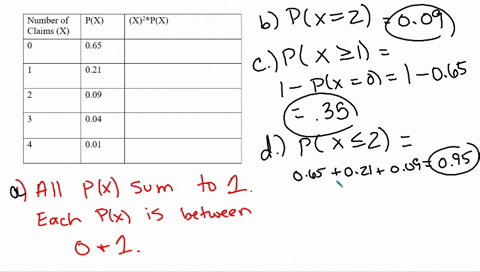 Number of Claims (X) P(X) (X)²*P(X)
0 0.65
1 0.21
2 0.09
3 0.04
4 0.01
a) All P(x) sum to 1.
Each P(x) is between
0 + 1.
b) P(x=2) = 0.09
c.) P(x ≥ 1) =
1 - P(x=0) = 1 - 0.65
= .35
d.) P(x ≤ 2) =
0.65 + 0.21 + 0.09 = 0.95